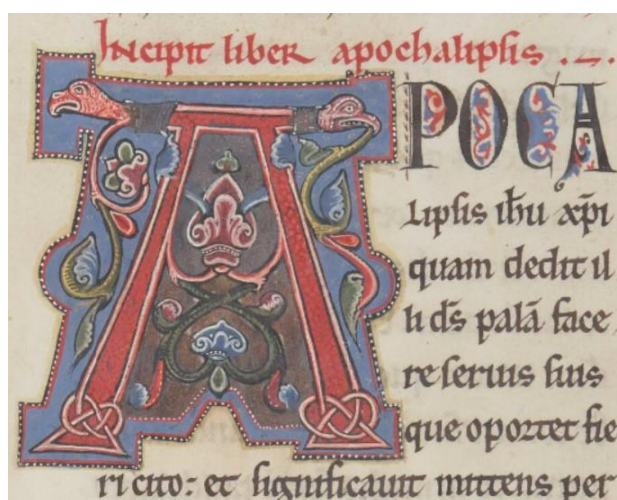 Incipit liber apochalipsis .~.
APOCA
lipsis ihu xpi
quam dedit il
li ds palā face
re servis suis
que oportet fie
ri cito: et significavit mittens per